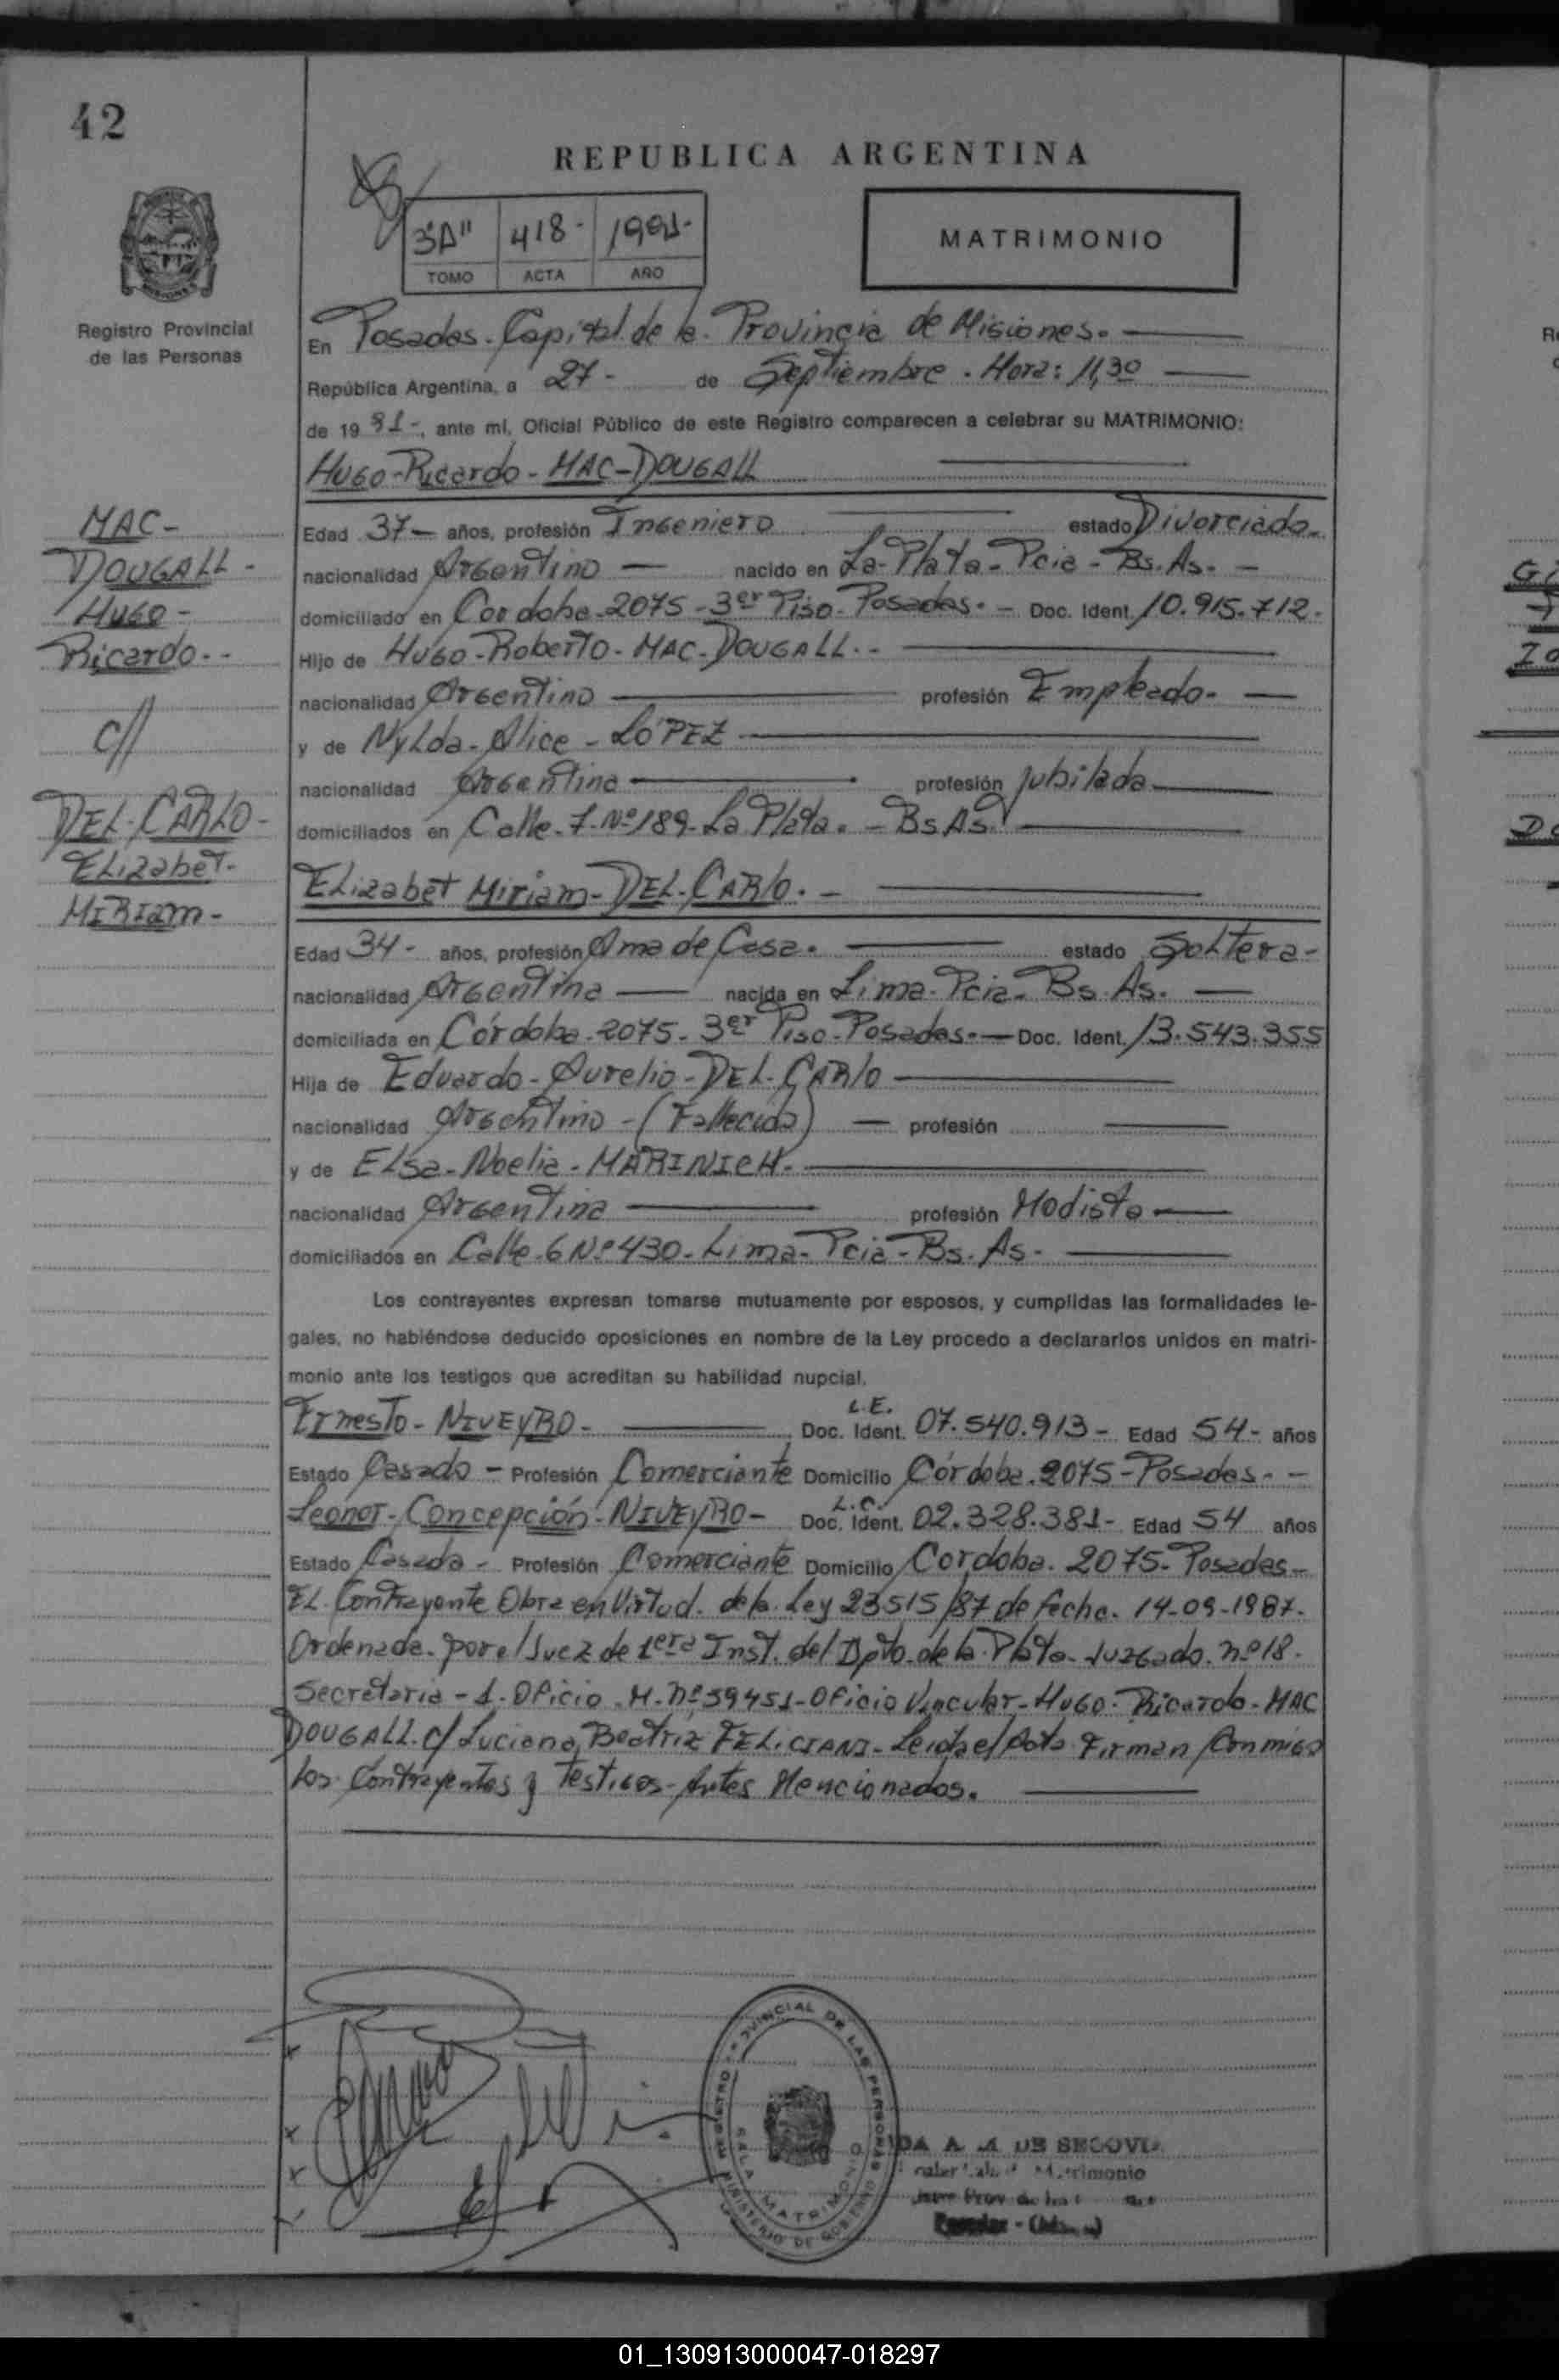 42
REPUBLICA ARGENTINA
3"A" 418- 1991-
TOMO ACTA AÑO
MATRIMONIO
Registro Provincial
de las Personas
En Posadas-Capital de la Provincia de Misiones.-
República Argentina, a 27- de Septiembre. Hora: 11,30
de 19 91-, ante mí, Oficial Público de este Registro comparecen a celebrar su MATRIMONIO:
Hugo-Ricardo-MAC-DOUGALL
MAC-
DOUGALL-
Hugo-
Ricardo.-
c//
DEL-CARLO-
Elizabet-
MIRIam-
Edad 37- años, profesión Ingeniero estado Divorciado.
nacionalidad Argentino - nacido en La-Plata-Pcia-Bs.As.-
domiciliado en Cordoba-2075-3er Piso-Posadas.- Doc. Ident. 10.915.712.
Hijo de Hugo-Roberto-MAC-DOUGALL.-
nacionalidad Argentino profesión Empleado.-
y de Nylda-Alice-LÓPEZ
nacionalidad Argentina profesión Jubilada
domiciliados en Calle-7-Nº189-La Plata.-Bs As.
Elizabet Miriam-DEL-CARlo.-
Edad 34- años, profesión Ama de Casa. estado Soltera-
nacionalidad Argentina - nacida en Lima-Pcia-Bs.As.-
domiciliada en Córdoba-2075-3er Piso-Posadas.- Doc. Ident. 13.543.355
Hija de Eduardo-Aurelio-DEL-CARlo
nacionalidad Argentino-(Fallecido) - profesión
y de Elsa-Noelia-MARINICH-
nacionalidad Argentina profesión Modista
domiciliados en Calle-6Nº430-Lima-Pcia-Bs.As-
Los contrayentes expresan tomarse mutuamente por esposos, y cumplidas las formalidades le-
gales, no habiéndose deducido oposiciones en nombre de la Ley procedo a declararlos unidos en matri-
monio ante los testigos que acreditan su habilidad nupcial.
Ernesto-NIVEYRO- L.E. Doc. Ident. 07.540.913- Edad 54- años
Estado Casado- Profesión Comerciante Domicilio Córdoba.2075-Posadas.-
Leonor-Concepción-NIVEYRO- L.C. Doc. Ident. 02.328.381- Edad 54 años
Estado Casada- Profesión Comerciante Domicilio Cordoba.2075-Posadas-
El Contrayente Obra en Virtud. de la Ley 23515/87 de fecha. 14-09-1987.
Ordenada-por el Juez de 1era Inst. del Dpto de la Plata-Juzgado.nº18.
Secretaria-1-Oficio-H-nº59451-Oficio Vincular-Hugo-Ricardo-MAC
DOUGALL c/ Luciana Beatriz FELICIANI-Leida el Acta Firman Conmigo
los Contrayentes y Testigos-Antes Mencionados.
REGISTRO PROVINCIAL DE LAS PERSONAS
SALA MATRIMONIO
MINISTERIO DE GOBIERNO
DE SEGOVIA
Matrimonio
01_130913000047-018297